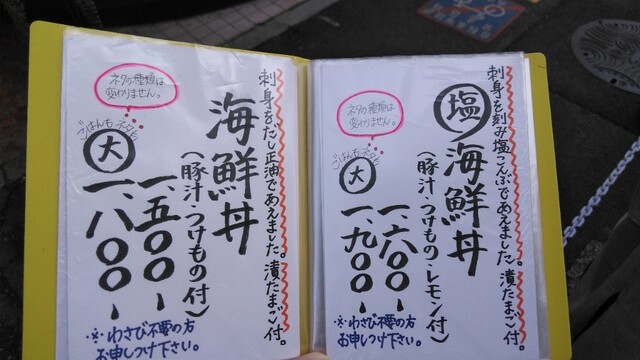 刺身を刻み塩こんぶであえました。漬たまご付。
塩海鮮丼
(豚汁・つけもの・レモン付)
一、六〇〇-
大 一、九〇〇-
ごはんもネタも
ネタの種類は
変わりません。
※わさび不要の方
お申しつけ下さい。
刺身をだし正油であえました。漬たまご付。
海鮮丼
(豚汁・つけもの付)
一、五〇〇-
大 一、八〇〇-
ごはんもネタも
ネタの種類は
変わりません。
※わさび不要の方
お申しつけ下さい。